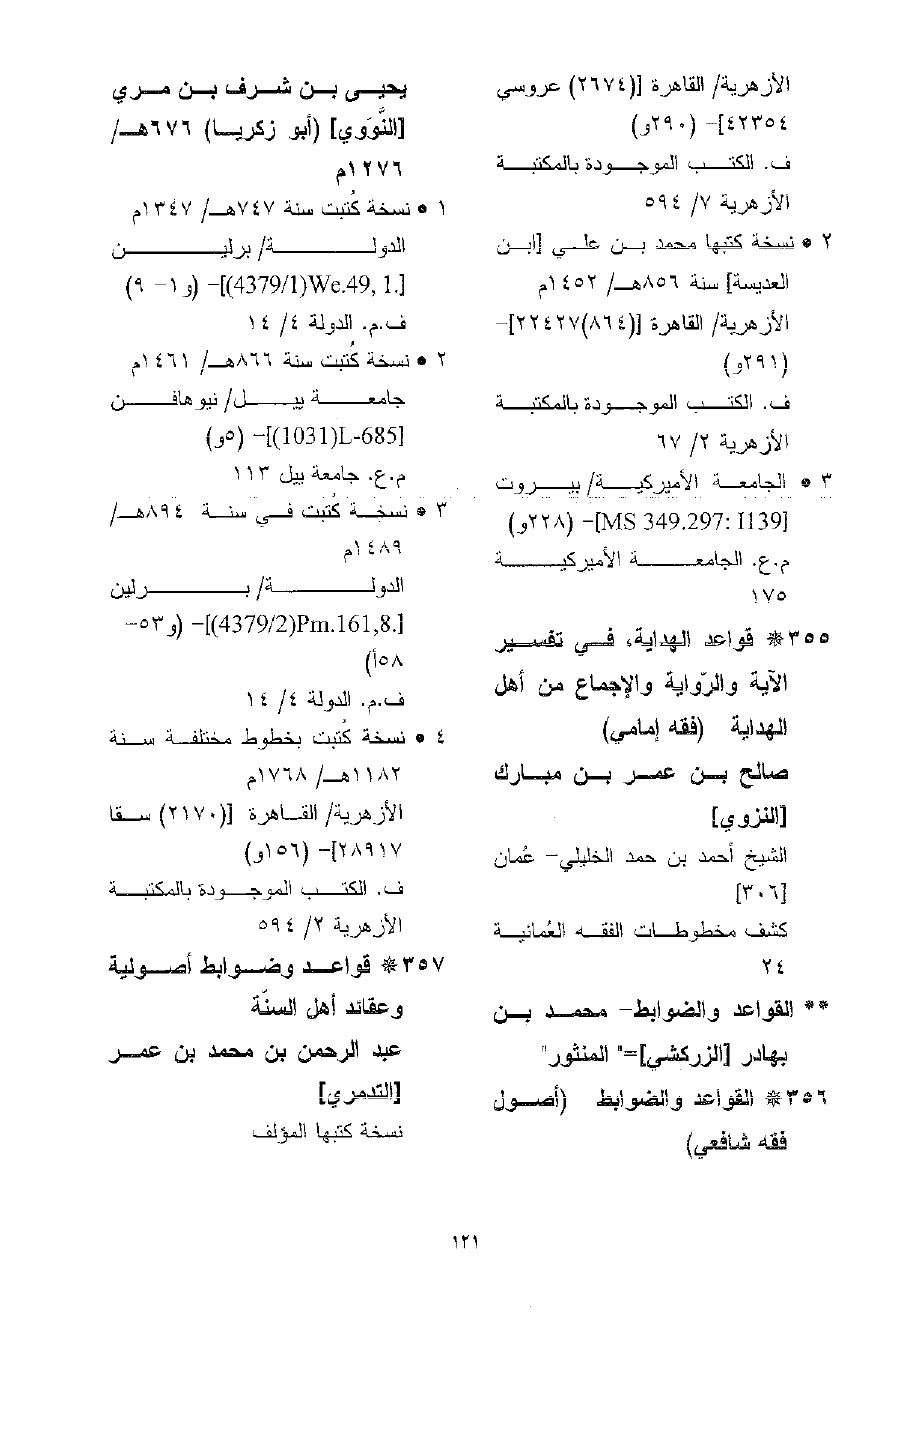 الأزهرية/ القاهرة [(٢٦٧٤) عروسي
٤٢٣٥٤]– (٢٩٠و)
ف. الكتب الموجودة بالمكتبة
الأزهرية ٧/ ٥٩٤
٢ • نسخة كتبها محمد بن علي [ابن
العديسة] سنة ٨٥٦هـ/ ١٤٥٢م
الأزهرية/ القاهرة [(٨٦٤)٢٢٤٢٧]–
(٢٩١و)
ف. الكتب الموجودة بالمكتبة
الأزهرية ٢/ ٦٧
٣ • الجامعة الأميركية/ بيروت
[MS 349.297: I139]– (٢٢٨و)
م.ع. الجامعة الأميركية
١٧٥
٣٥٥* قواعد الهداية، في تفسير
الآية والرّواية والإجماع من أهل
الهداية (فقه إمامي)
صالح بن عمر بن مبارك
[النزوي]
الشيخ أحمد بن حمد الخليلي– عُمان
[٣٠٦]
كشف مخطوطات الفقه العُمانية
٢٤
** القواعد والضوابط– محمد بن
بهادر [الزركشي]=" المنثور"
٣٥٦* القواعد والضوابط (أصول
فقه شافعي)
يحيى بن شرف بن مري
[النَّوَوي] (أبو زكريا) ٦٧٦هـ/
١٢٧٦م
١ • نسخة كُتبت سنة ٧٤٧هـ/ ١٣٤٧م
الدولة/ برلين
[(4379/1)We.49, 1.]– (و١– ٩)
ف.م. الدولة ٤/ ١٤
٢ • نسخة كُتبت سنة ٨٦٦هـ/ ١٤٦١م
جامعة ييل/ نيوهافن
[(1031)L-685]– (٥و)
م.ع. جامعة ييل ١١٣
٣ • نسخة كُتبت في سنة ٨٩٤هـ/
١٤٨٩م
الدولة/ برلين
[(4379/2)Pm.161,8.]– (و٥٣–
٥٨أ)
ف.م. الدولة ٤/ ١٤
٤ • نسخة كُتبت بخطوط مختلفة سنة
١١٨٢هـ/ ١٧٦٨م
الأزهرية/ القاهرة [(٢١٧٠) سقا
٢٨٩١٧]– (١٥٦و)
ف. الكتب الموجودة بالمكتبة
الأزهرية ٢/ ٥٩٤
٣٥٧* قواعد وضوابط أصولية
وعقائد أهل السنّة
عبد الرحمن بن محمد بن عمر
[التدمري]
نسخة كتبها المؤلف
١٢١